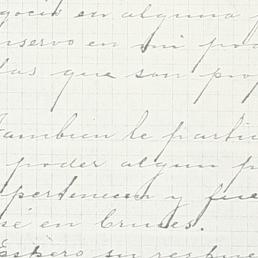 en alguna
nservo en mi pod
las que son prop
También le partic
poder algun p
pertenecen y fue
sé en Cruces.
Espero su respue